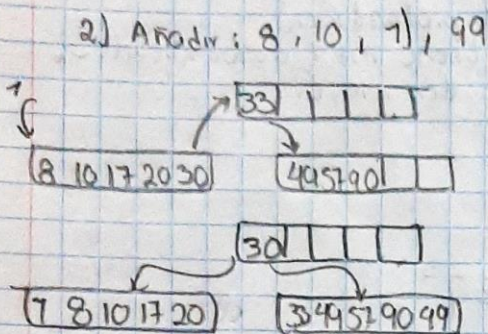 2) Añadir: 8, 10, 7, 99
33
8 10 17 20 30
49 57 90
30
7 8 10 17 20
33 49 57 90 99